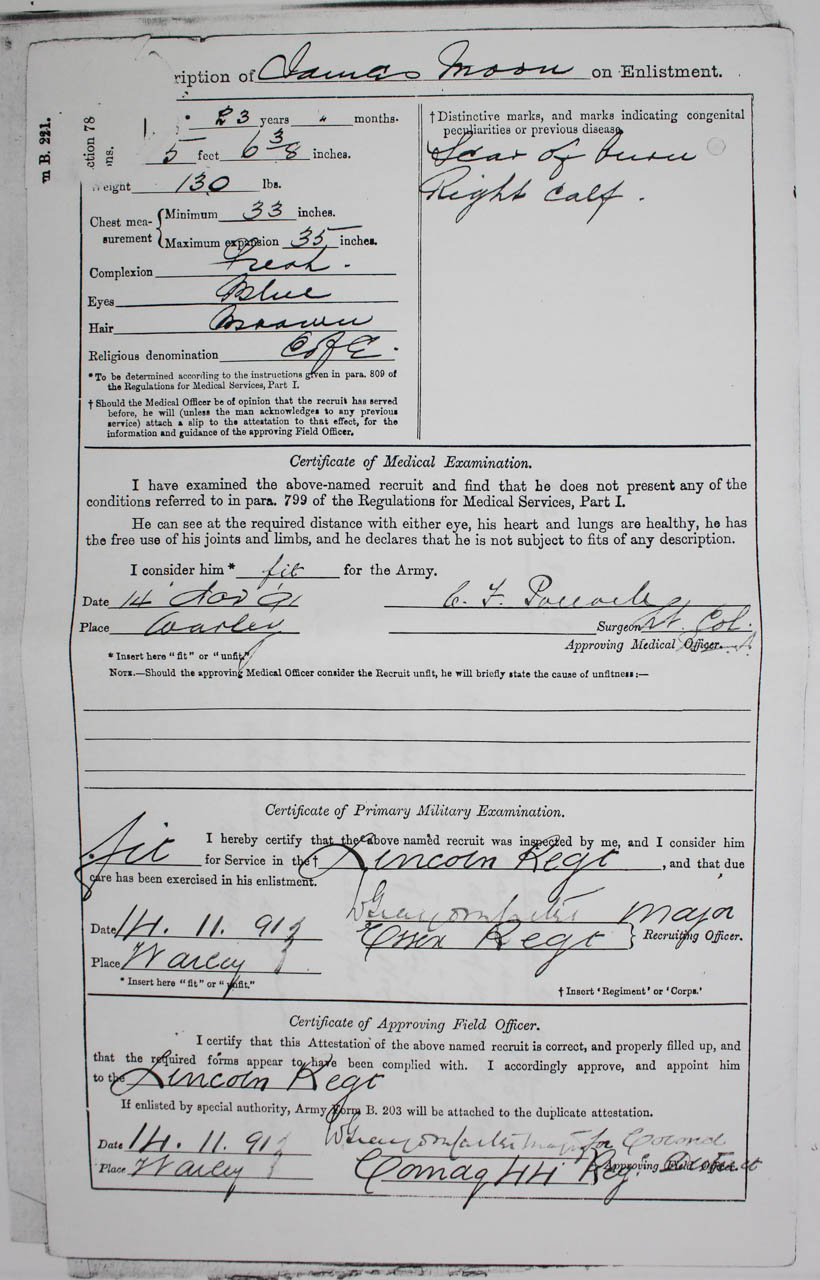 ription of James Moon on Enlistment.
m B. 221.
ction 78
ns.
23 years " months.
5 feet 6 3/8 inches.
eight 130 lbs.
Chest mea-surement { Minimum 33 inches.
Maximum expansion 35 inches.
Complexion Fresh.
Eyes Blue
Hair Brown
Religious denomination C of E.
* To be determined according to the instructions given in para. 809 of
the Regulations for Medical Services, Part I.
† Should the Medical Officer be of opinion that the recruit has served
before, he will (unless the man acknowledges to any previous
service) attach a slip to the attestation to that effect, for the
information and guidance of the approving Field Officer.
† Distinctive marks, and marks indicating congenital
peculiarities or previous disease.
Scar of burn
Right calf.
Certificate of Medical Examination.
I have examined the above-named recruit and find that he does not present any of the
conditions referred to in para. 799 of the Regulations for Medical Services, Part I.
He can see at the required distance with either eye, his heart and lungs are healthy, he has
the free use of his joints and limbs, and he declares that he is not subject to fits of any description.
I consider him * fit for the Army.
Date 14 Nov 91 C. F.
Place Warley Surgeon Lt. Col.
Approving Medical Officer.
* Insert here "fit" or "unfit."
NOTE.—Should the approving Medical Officer consider the Recruit unfit, he will briefly state the cause of unfitness:—
Certificate of Primary Military Examination.
I hereby certify that the above named recruit was inspected by me, and I consider him
fit for Service in the † Lincoln Regt, and that due
care has been exercised in his enlistment.
Major
Date 14. 11. 91 Essex Regt } Recruiting Officer.
Place Warley
* Insert here "fit" or "unfit." † Insert 'Regiment' or 'Corps.'
Certificate of Approving Field Officer.
I certify that this Attestation of the above named recruit is correct, and properly filled up, and
that the required forms appear to have been complied with. I accordingly approve, and appoint him
to the Lincoln Regt
If enlisted by special authority, Army Form B. 203 will be attached to the duplicate attestation.
Date 14. 11. 91 Major for Colonel
Place Warley Comdg 44 Reg. District
Approving Field Officer.